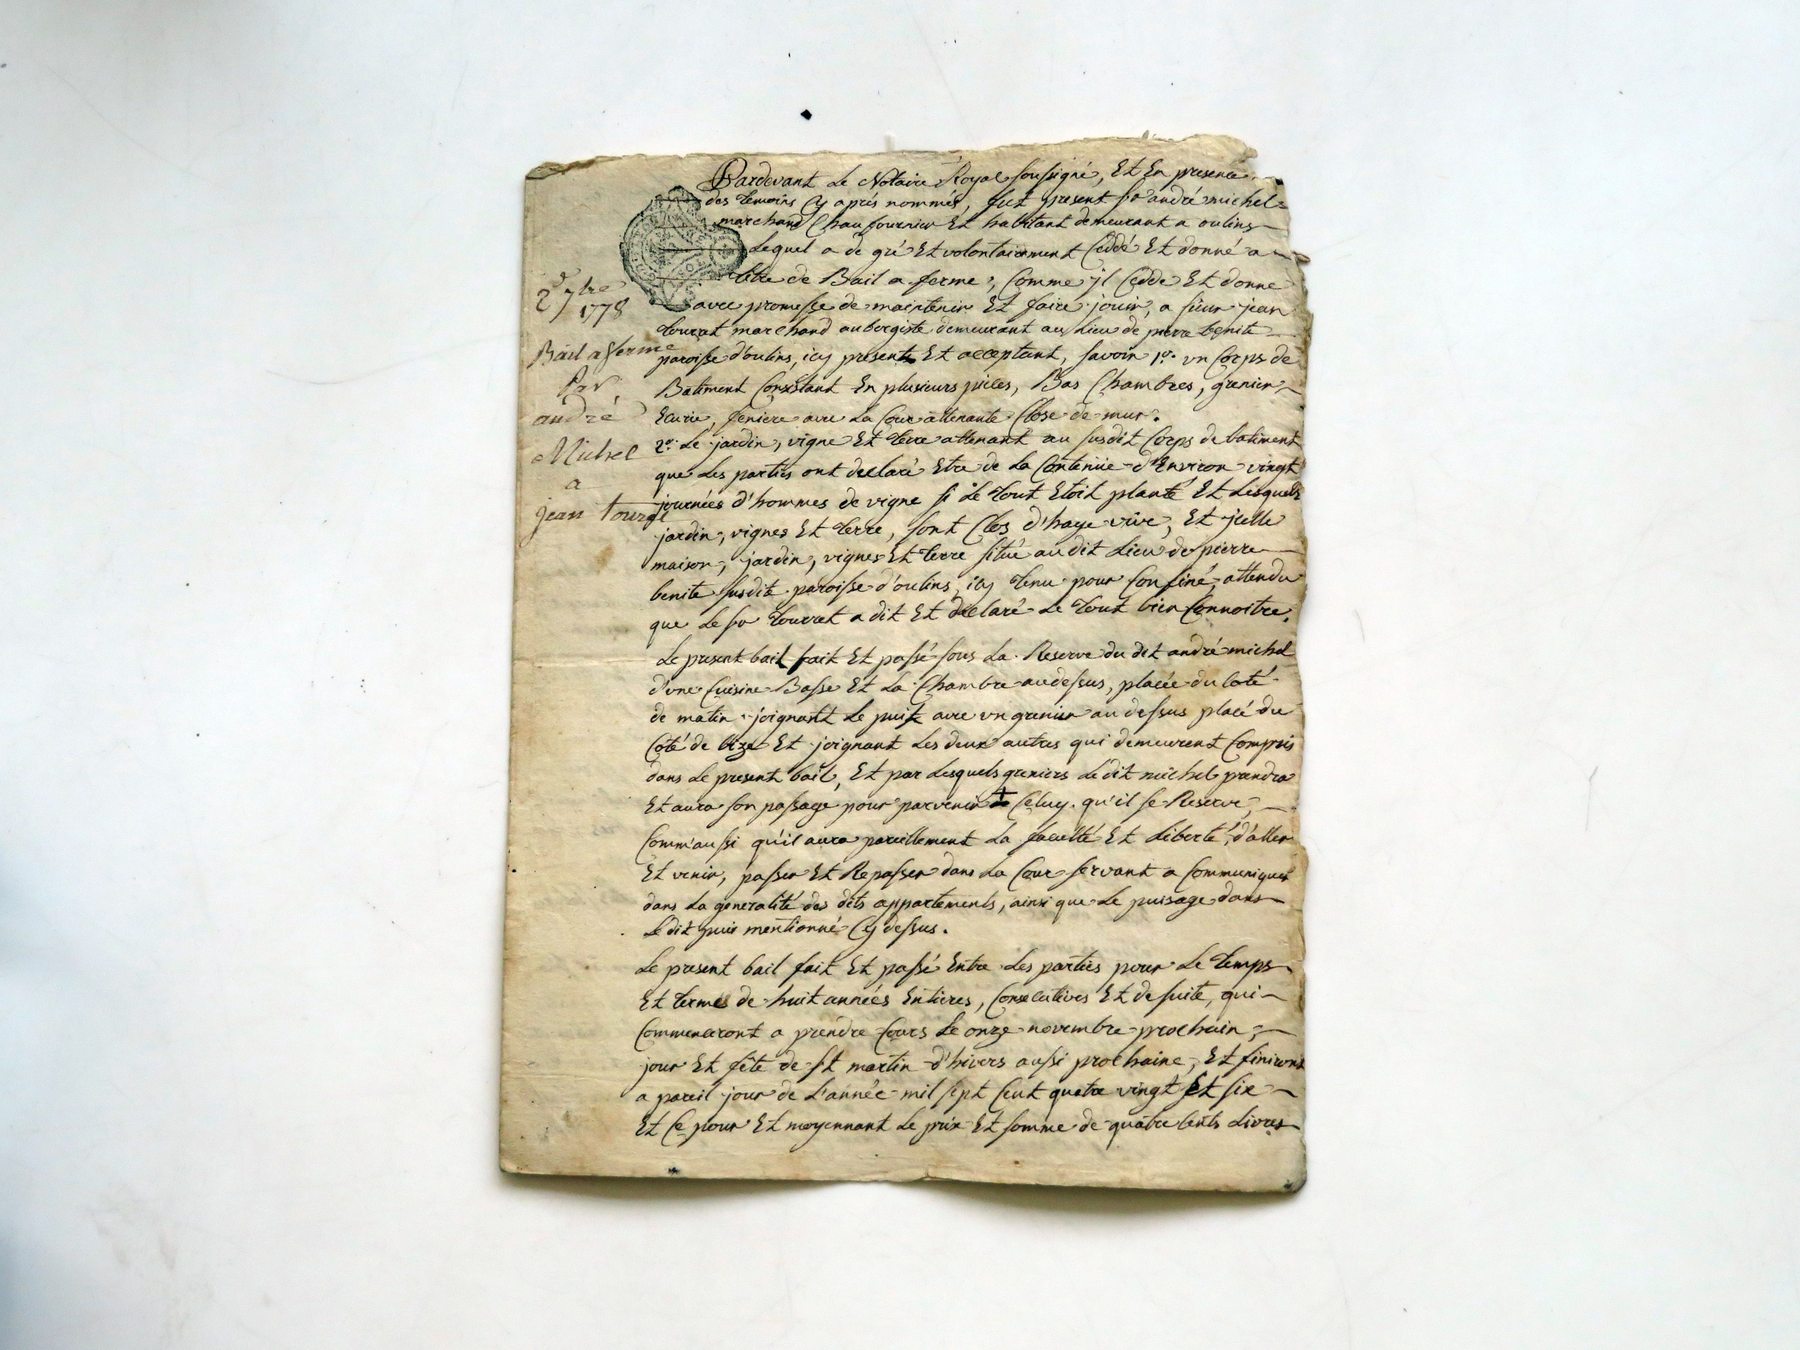 Pardevant Le Notaire Royal soussigné, Et En presence
des temoins Cy aprés nommés, fut present sr andré michel
marchand Chaufournier Et habitant demeurant a oulins
Lequel a de gré Et volontairement Ceddé Et donné a
titre de Bail a ferme, Comme jl Cedde Et donne
avec promesse de maintenir Et faire jouir, a sieur jean
tourret marchand aubergiste demeurant au Lieu de pierre benite
paroisse d'oulins, icy present Et acceptant, savoir 1o. un Corps de
Batiment Consistant En plusieurs pieces, Bas Chambres, grenier
Ecurie, feniere avec La Cour attenante Close de mur.
2o. Le jardin, vigne Et terre attenant au susdit Corps de batiment
que Les parties ont declaré Etre de La Contenüe d'Environ vingt
journées d'hommes de vigne si Le tout Etoit planté Et Lesquels
jardin, vignes Et terre, sont Clos d'haye vive, Et jcelle
maison, jardin, vignes Et terre situé audit Lieu de pierre
benite susdite paroisse d'oulins, icy tenu pour Confiné, attendu
que Le sr tourret a dit Et declaré Le tout bien Connoitre.
Le present bail fait Et passé sous La Reserve du dit andré michel
d'une Cuisine Basse Et La Chambre audessus, placée du Coté
de matin joignant Le puit avec un grenier au dessus placé du
Coté de bize Et joignant Les deux autres qui demeurent Compris
dans Le present bail, Et par Lesquels greniers Le dit michel prendra
Et aura son passage pour parvenir a Celuy qu'il se Reserve,
Comm'aussi qu'il aura pareillement La faculté Et Liberté d'aller
Et venir, passer Et Repasser dans La Cour servant a Communiquer
dans La generalité des dits appartements, ainsi que Le puisage dans
Le dit puis mentionné Cy dessus.
Le present bail fait Et passé Entre Les parties pour Le temps
Et termes de huit années Entieres, Consecutives Et de suite, qui
Commenceront a prendre Cours Le onze novembre prochain,
jour Et fête de st martin d'hivers aussi prochaine, Et finiront
a pareil jour de L'année mil sept Cent quatre vingt Et six
Et Ce pour Et moyennant Le prix Et somme de quatre Cents Livres
2e 7bre
1778
Bail a ferme
Par
andré
Michel
a
jean tourret